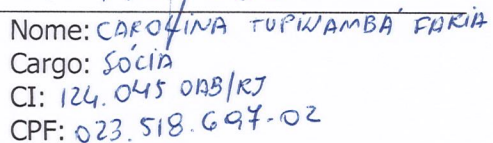 Nome: CAROLINA TUPINAMBÁ FARIA
Cargo: SÓCIA
CI: 124.045 OAB/RJ
CPF: 023.518.697-02